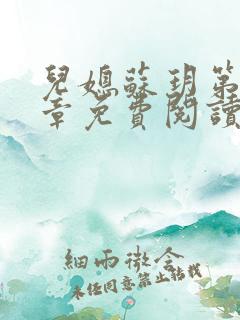 兒媳蘇玥第
章免費閱讀
細雨微含
未經同意禁止轉載